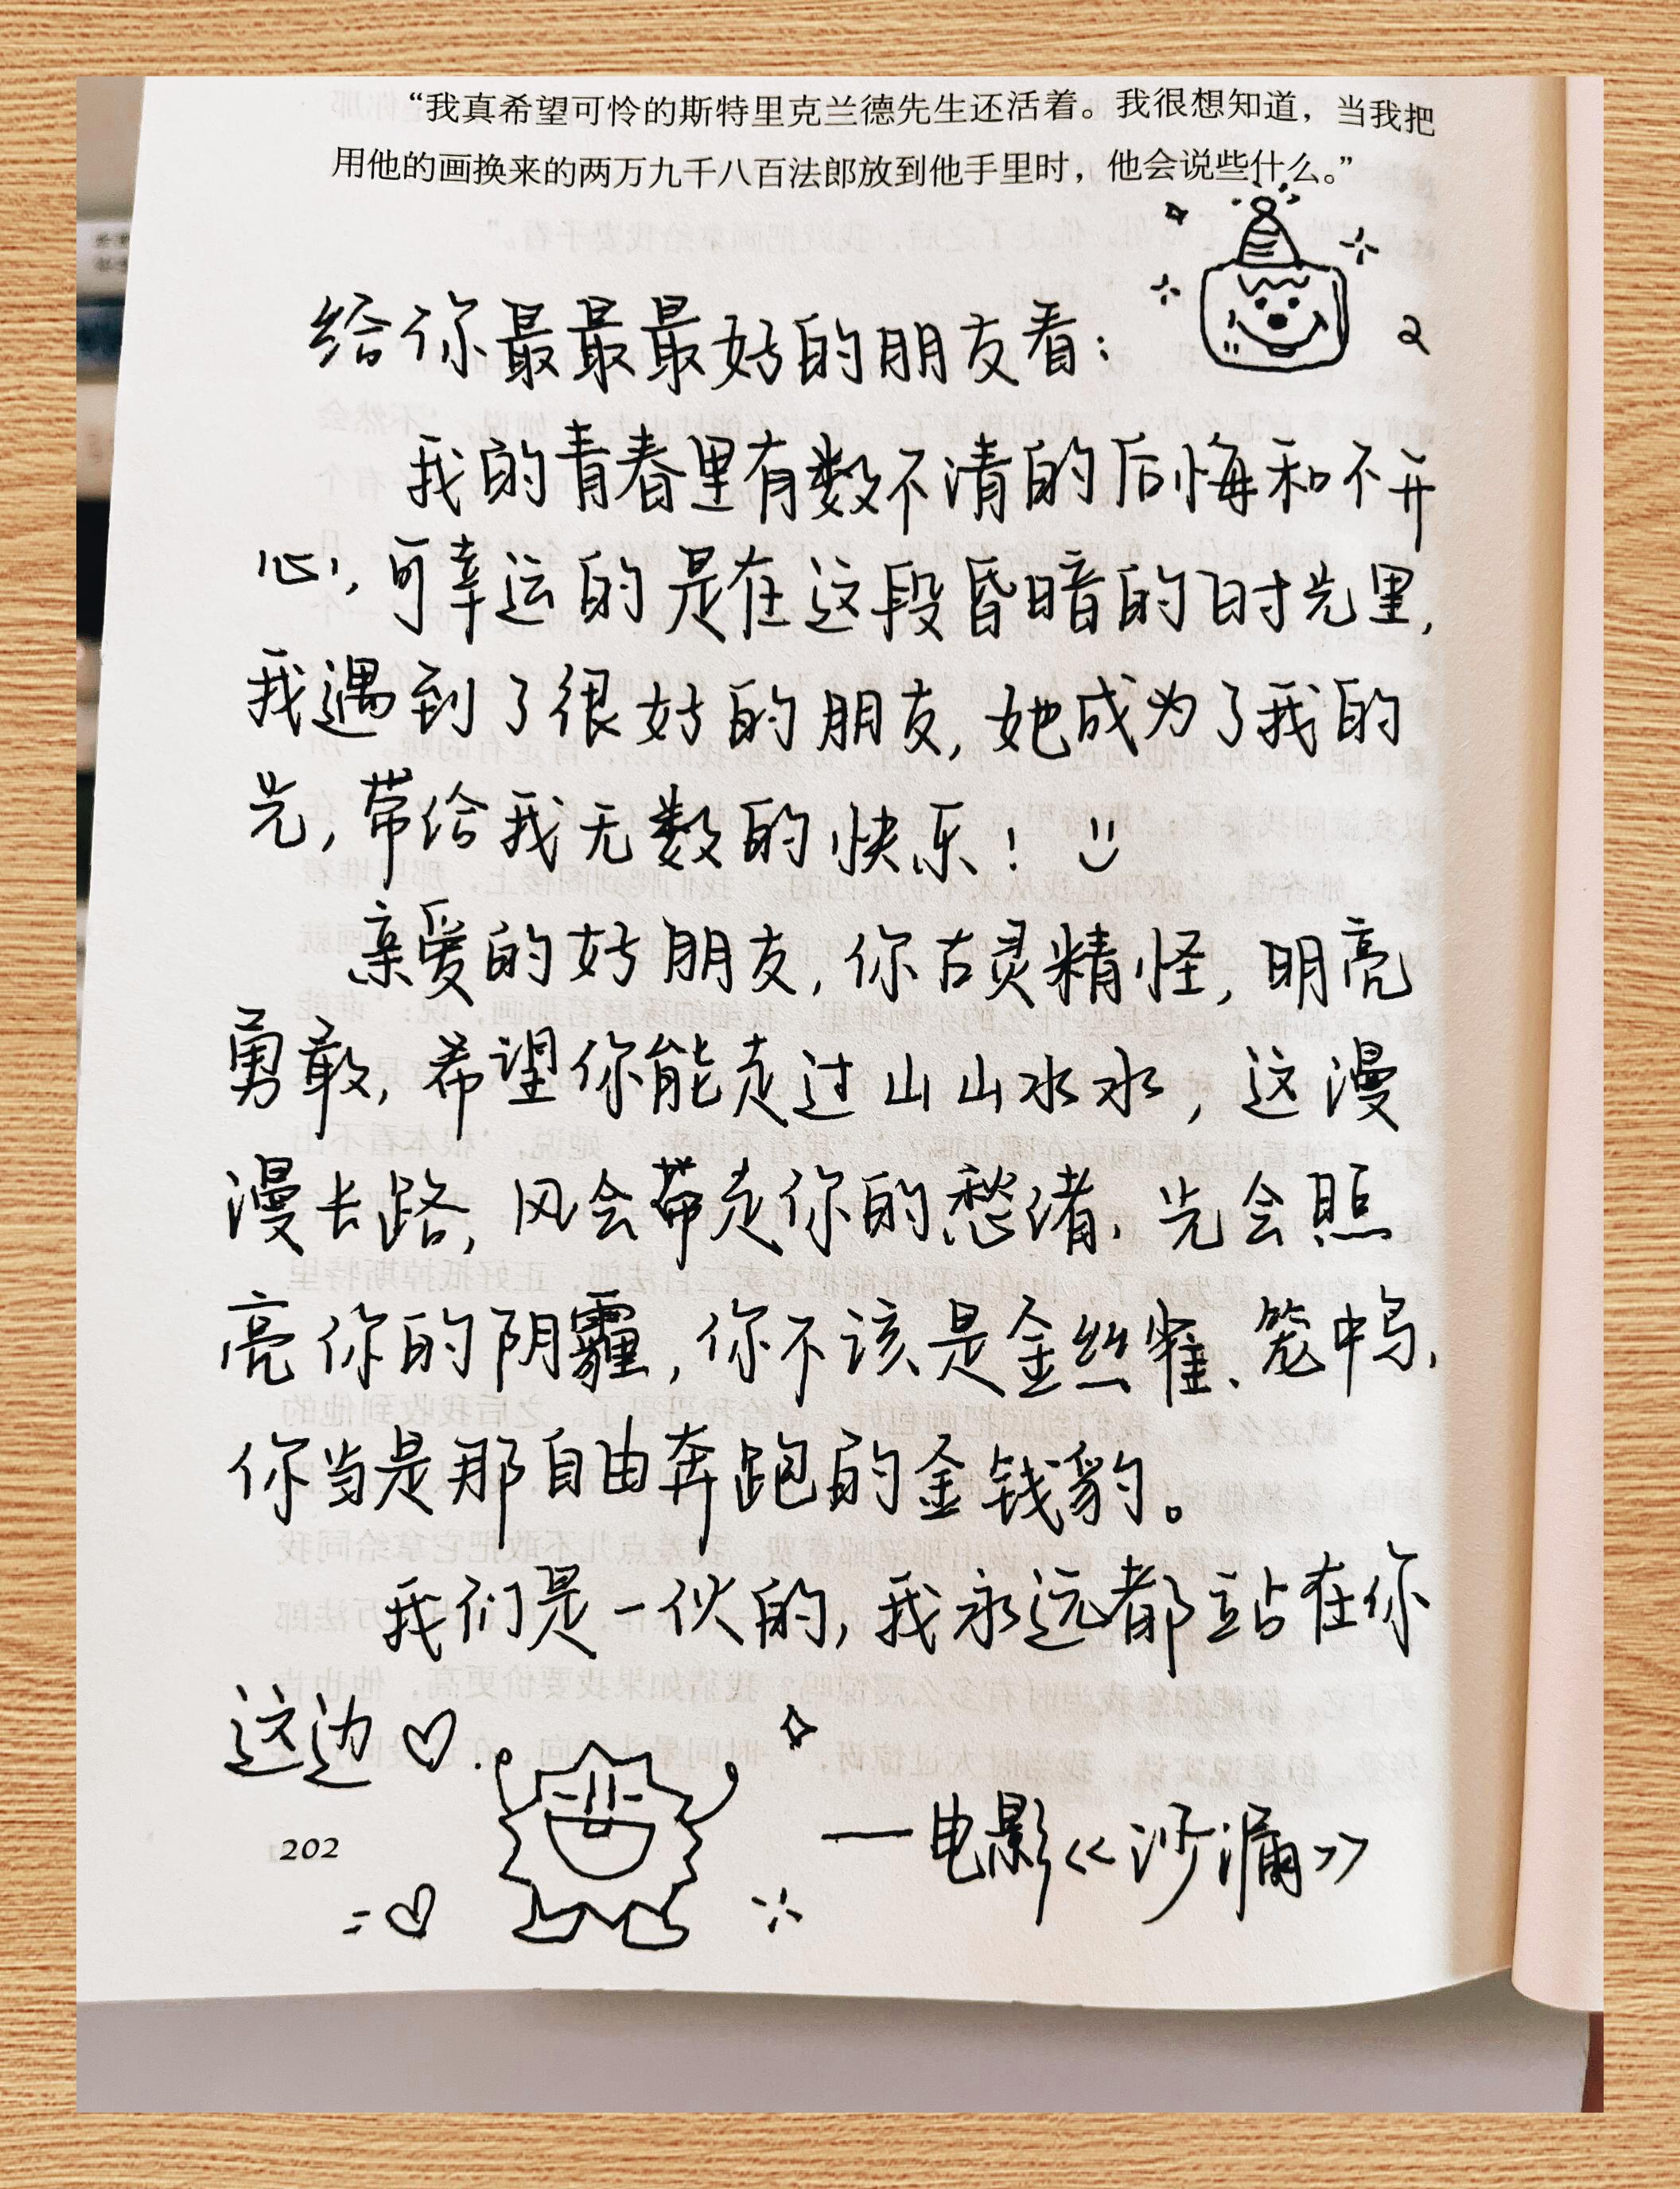 “我真希望可怜的斯特里克兰德先生还活着。我很想知道，当我把
用他的画换来的两万九千八百法郎放到他手里时，他会说些什么。”
给你最最最好的朋友看：
我的青春里有数不清的后悔和不开
心，可幸运的是在这段昏暗的时光里，
我遇到了很好的朋友，她成为了我的
光，带给我无数的快乐！
亲爱的好朋友，你古灵精怪，明亮
勇敢，希望你能走过山山水水，这漫
漫长路，风会带走你的愁绪，光会照
亮你的阴霾，你不该是金丝雀、笼中鸟，
你当是那自由奔跑的金钱豹。
我们是一伙的，我永远都站在你
这边♡.
202
—电影《沙漏》